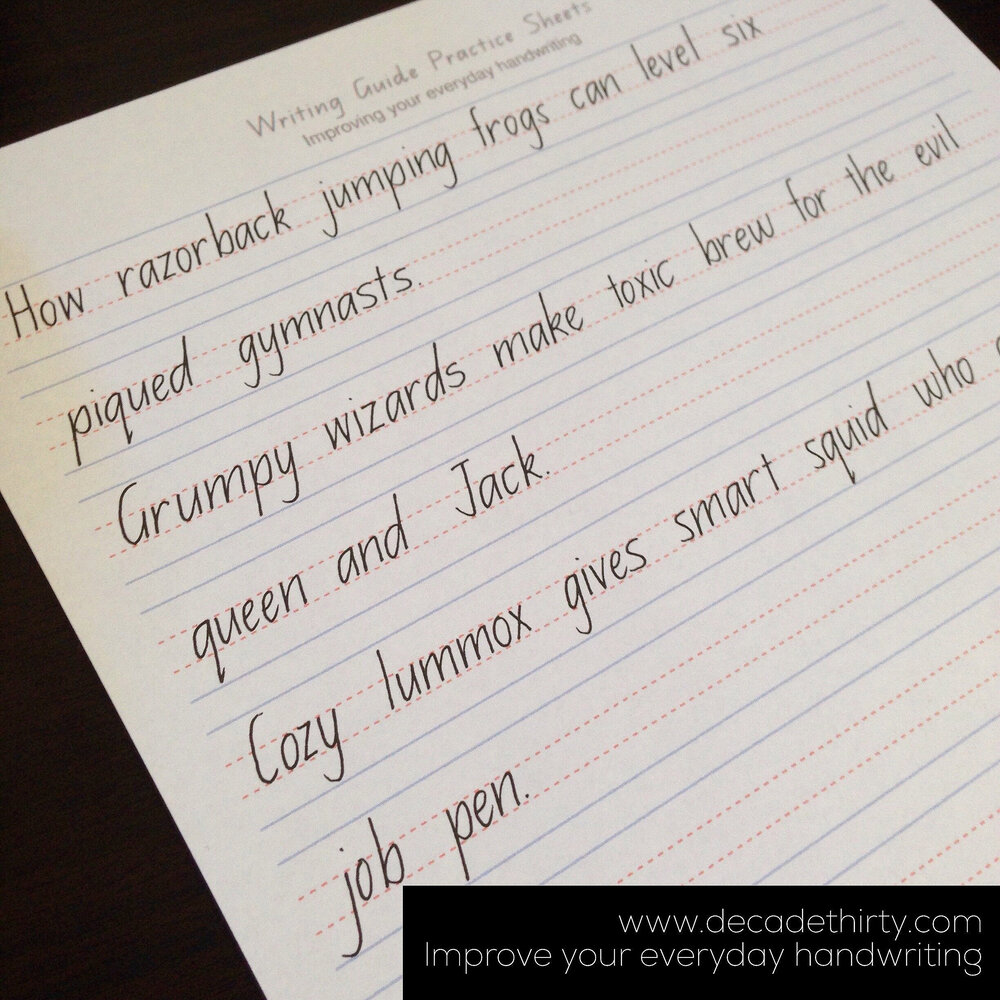 Writing Guide Practice Sheets
Improving your everyday handwriting
How razorback jumping frogs can level six
piqued gymnasts.
Grumpy wizards make toxic brew for the evil
queen and Jack.
Cozy lummox gives smart squid who
job pen.
www.decadethirty.com
Improve your everyday handwriting